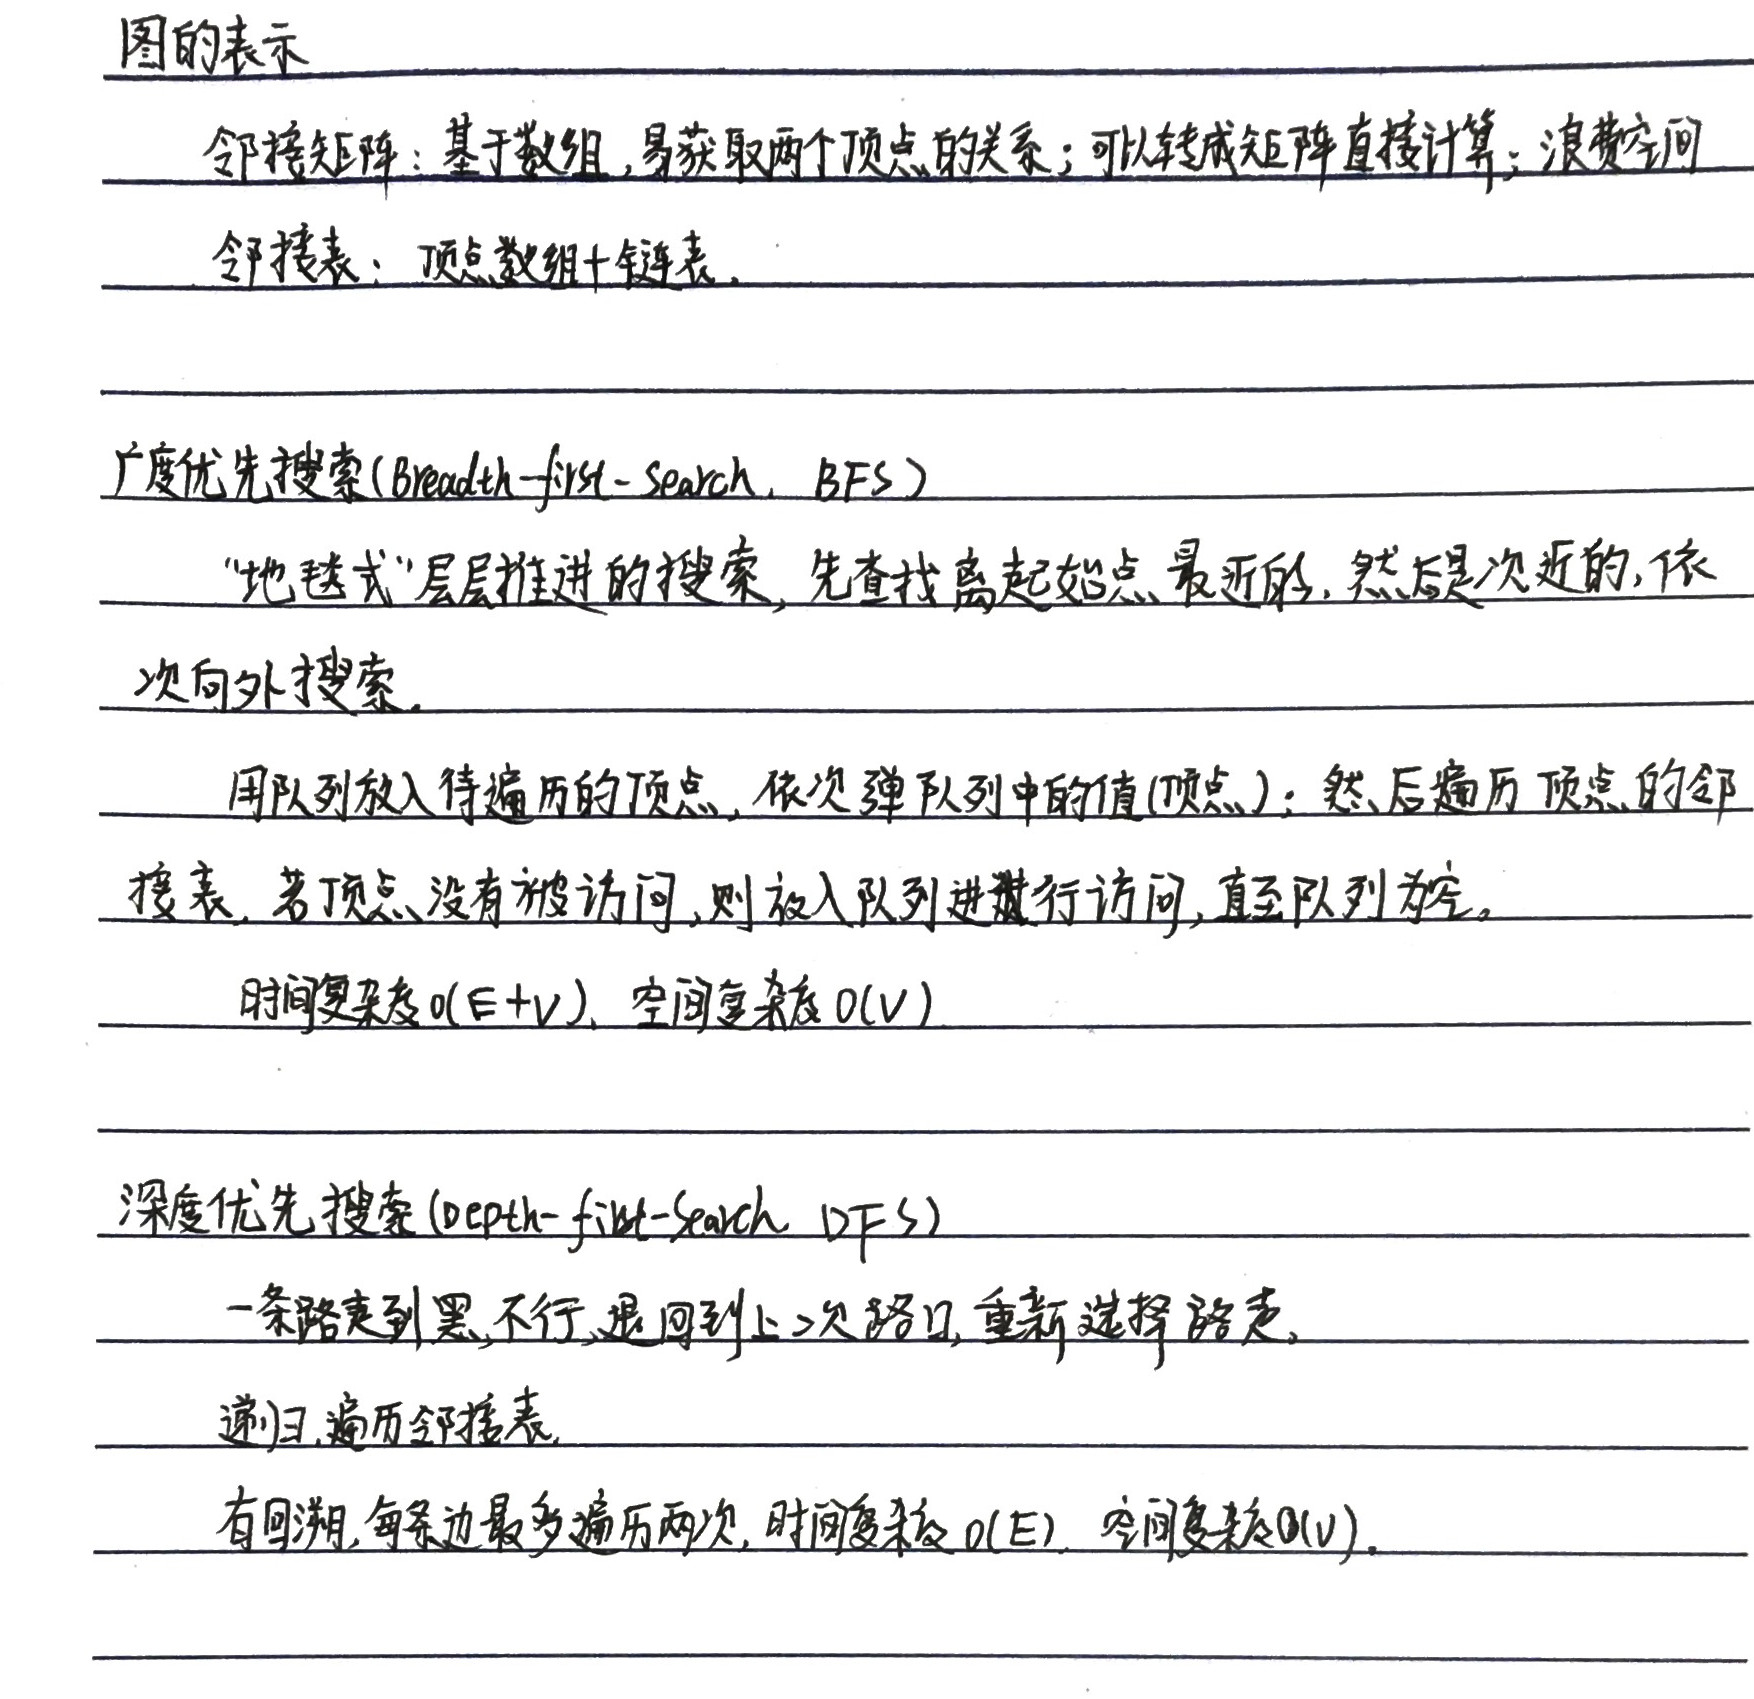 图的表示
邻接矩阵：基于数组，易获取两个顶点的关系；可以转成矩阵直接计算；浪费空间
邻接表：顶点数组+链表。
广度优先搜索(Breadth-first-search, BFS)
“地毯式”层层推进的搜索，先查找离起始点最近的，然后是次近的，依
次向外搜索。
用队列放入待遍历的顶点，依次弹队列中的值(顶点)；然后遍历顶点的邻
接表，若顶点没有被访问，则放入队列进行访问，直至队列为空。
时间复杂度O(E+V)、空间复杂度O(V)
深度优先搜索(Depth-first-Search DFS)
一条路走到黑，不行，退回到上次路口，重新选择路走。
递归，遍历邻接表。
有回溯，每条边最多遍历两次，时间复杂度O(E)，空间复杂度O(V)。